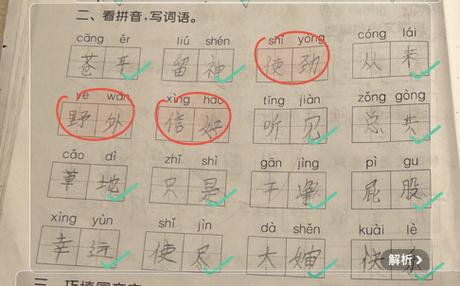 二、看拼音,写词语。
cāng ěr liú shén shǐ yong cóng lái
苍耳 留神 使劲 从来
yě wān xìng hǎo tīng jiàn zǒng gòng
野外 信好 听见 总共
cǎo dì zhǐ shì gān jìng pì gu
草地 只是 干净 屁股
xìng yùn shǐ jìn dà shěn kuài lè
幸远 使尽 大婶 快乐
解析